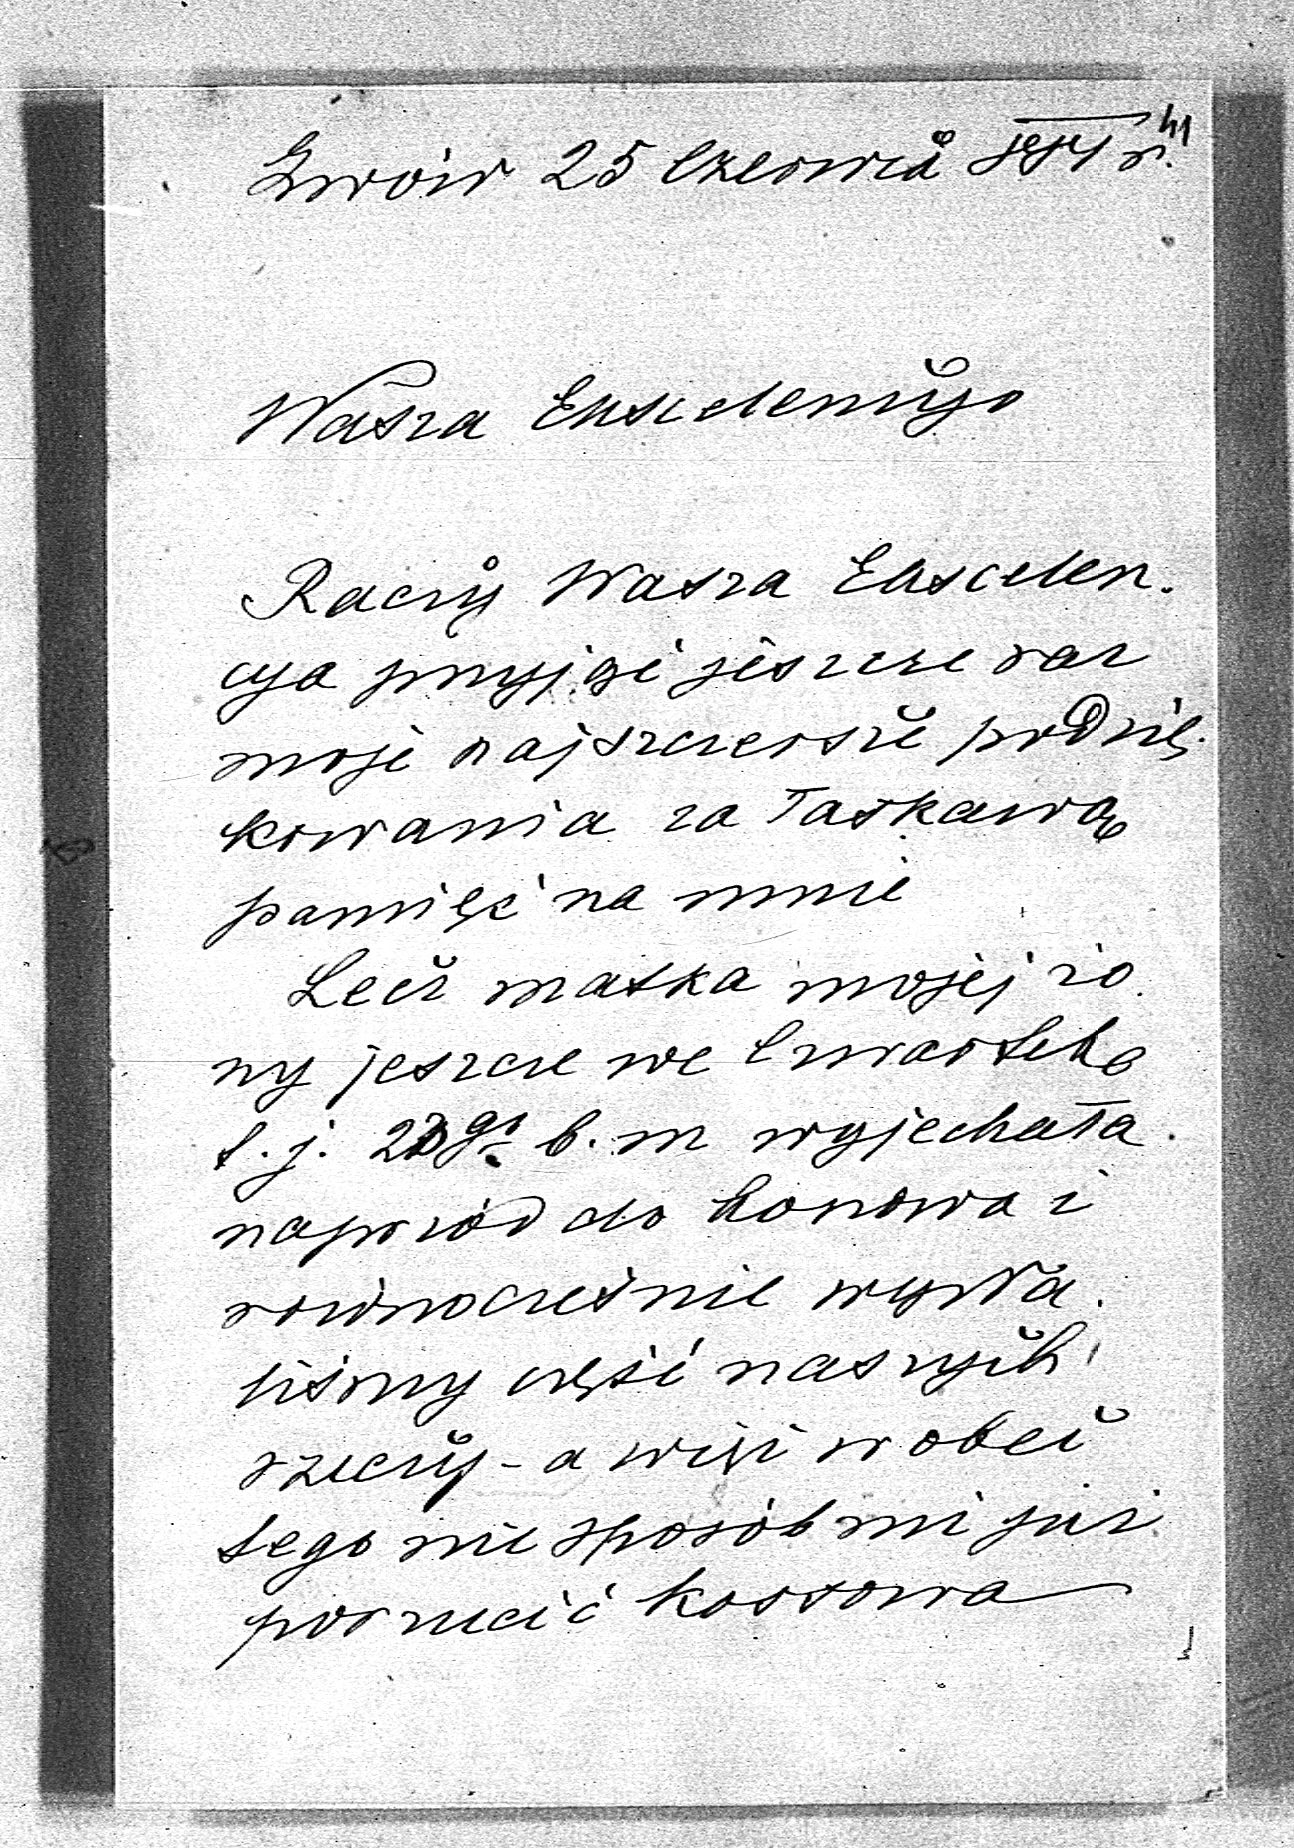 41
Lwów 25 Czerwca r.
Wasza Ekscelencyjo
Raczy Wasza Ekscelen.
cya przyjąć jeszcze raz
moje najszczersze podzię.
kowania za łaskawą
pamięć na mnie
Lecz matka mojej żo
ny jeszcze we Czwartek
t. j. go b. m wyjechała
naprzód do Kossowa i
równocześnie wysła.
liśmy część naszych
rzeczy - a więc wobec
tego nie sposób mi już
porzucić Kossowa